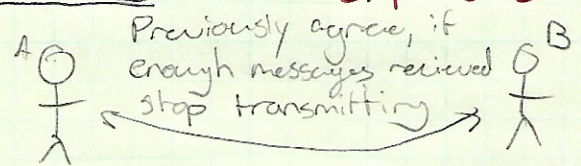 Previously agree, if
A enough messages recieved B
stop transmitting